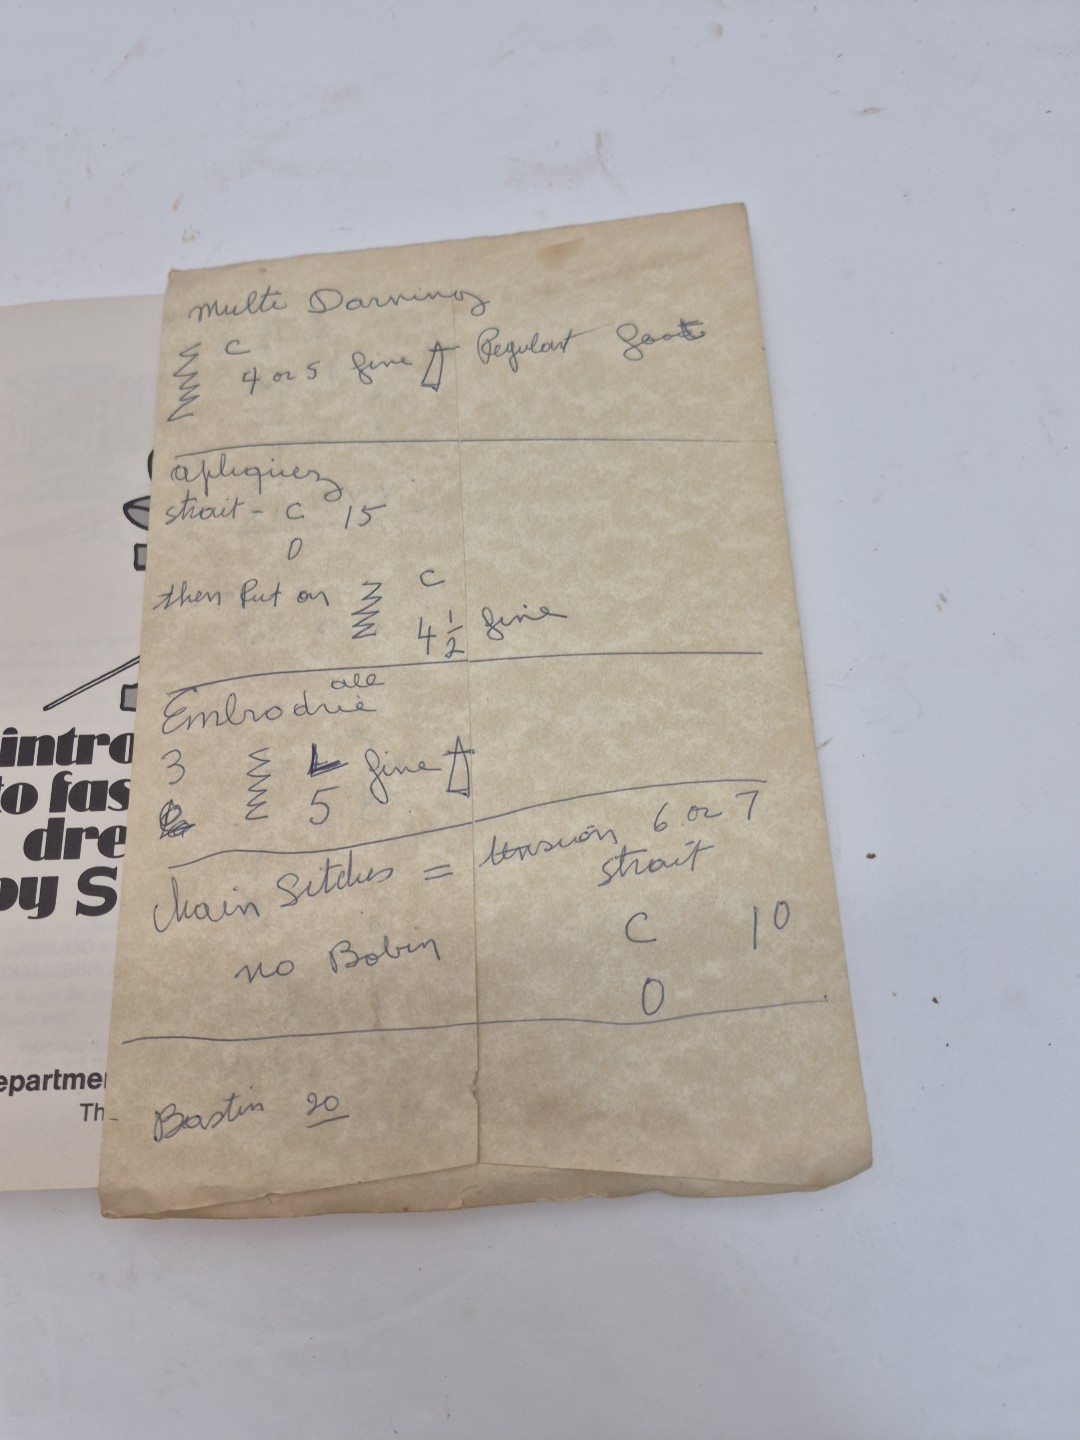 Multi Darning
C
4 or 5 fine Regulart foot
apliquez
strait - C 15
0
then Put on C
4 1/2 fine
all
Embrodrie
3 L fine
5
Chain Sitches = tension 6 or 7
strait
no Bobin C 10
0
Bastin 20
intro
to fas
dre
by S
epartme
Th